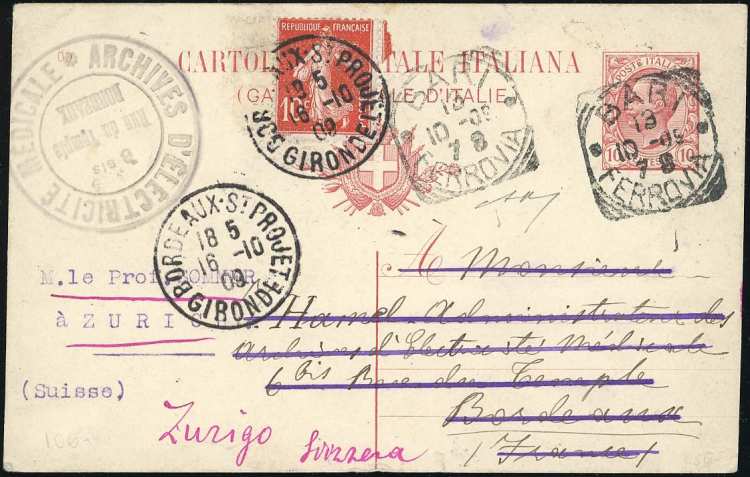 CARTOLINA POSTALE ITALIANA
(CARTE POSTALE D'ITALIE)
POSTE ITALIANE
10
REPUBLIQUE FRANÇAISE
10
ARCHIVES D'ÉLECTRICITÉ MÉDICALE
6 bis
Rue du Temple
BORDEAUX
BORDEAUX-ST PROJET
18 5
16 -10
09
GIRONDE
BARI
19
10 -09
7 S
FERROVIA
BARI
19
10 -09
7 S
FERROVIA
BORDEAUX-ST PROJET
18 5
16 -10
09
GIRONDE
A Monsieur
Hamel Administrateur des
Archives d'Electricité Médicale
6 bis Rue du Temple
Bordeaux
(France)
M.le Prof. SOMMER
à ZURIC
(Suisse)
Zurigo Svizzera